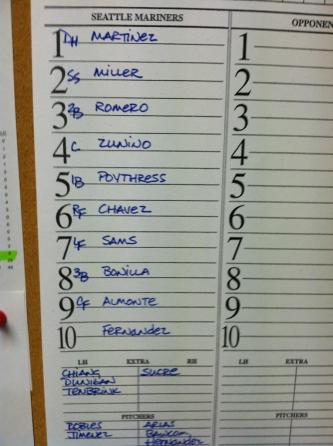 SEATTLE MARINERS
OPPONEN
1 DH MARTINEZ
1
2 SS MILLER
2
3 2B ROMERO
3
4 C ZUNINO
4
5 1B POYTHRESS
5
6 RF CHAVEZ
6
7 LF SAMS
7
8 3B BONILLA
8
9 CF ALMONTE
9
10 FERNANDEZ
10
LH EXTRA RH
LH EXTRA
CHIANG SUCRE
DUNIGAN
TENBRINK
PITCHERS
PITCHERS
ROBLES ARIAS
JIMENEZ
HERNANDEZ